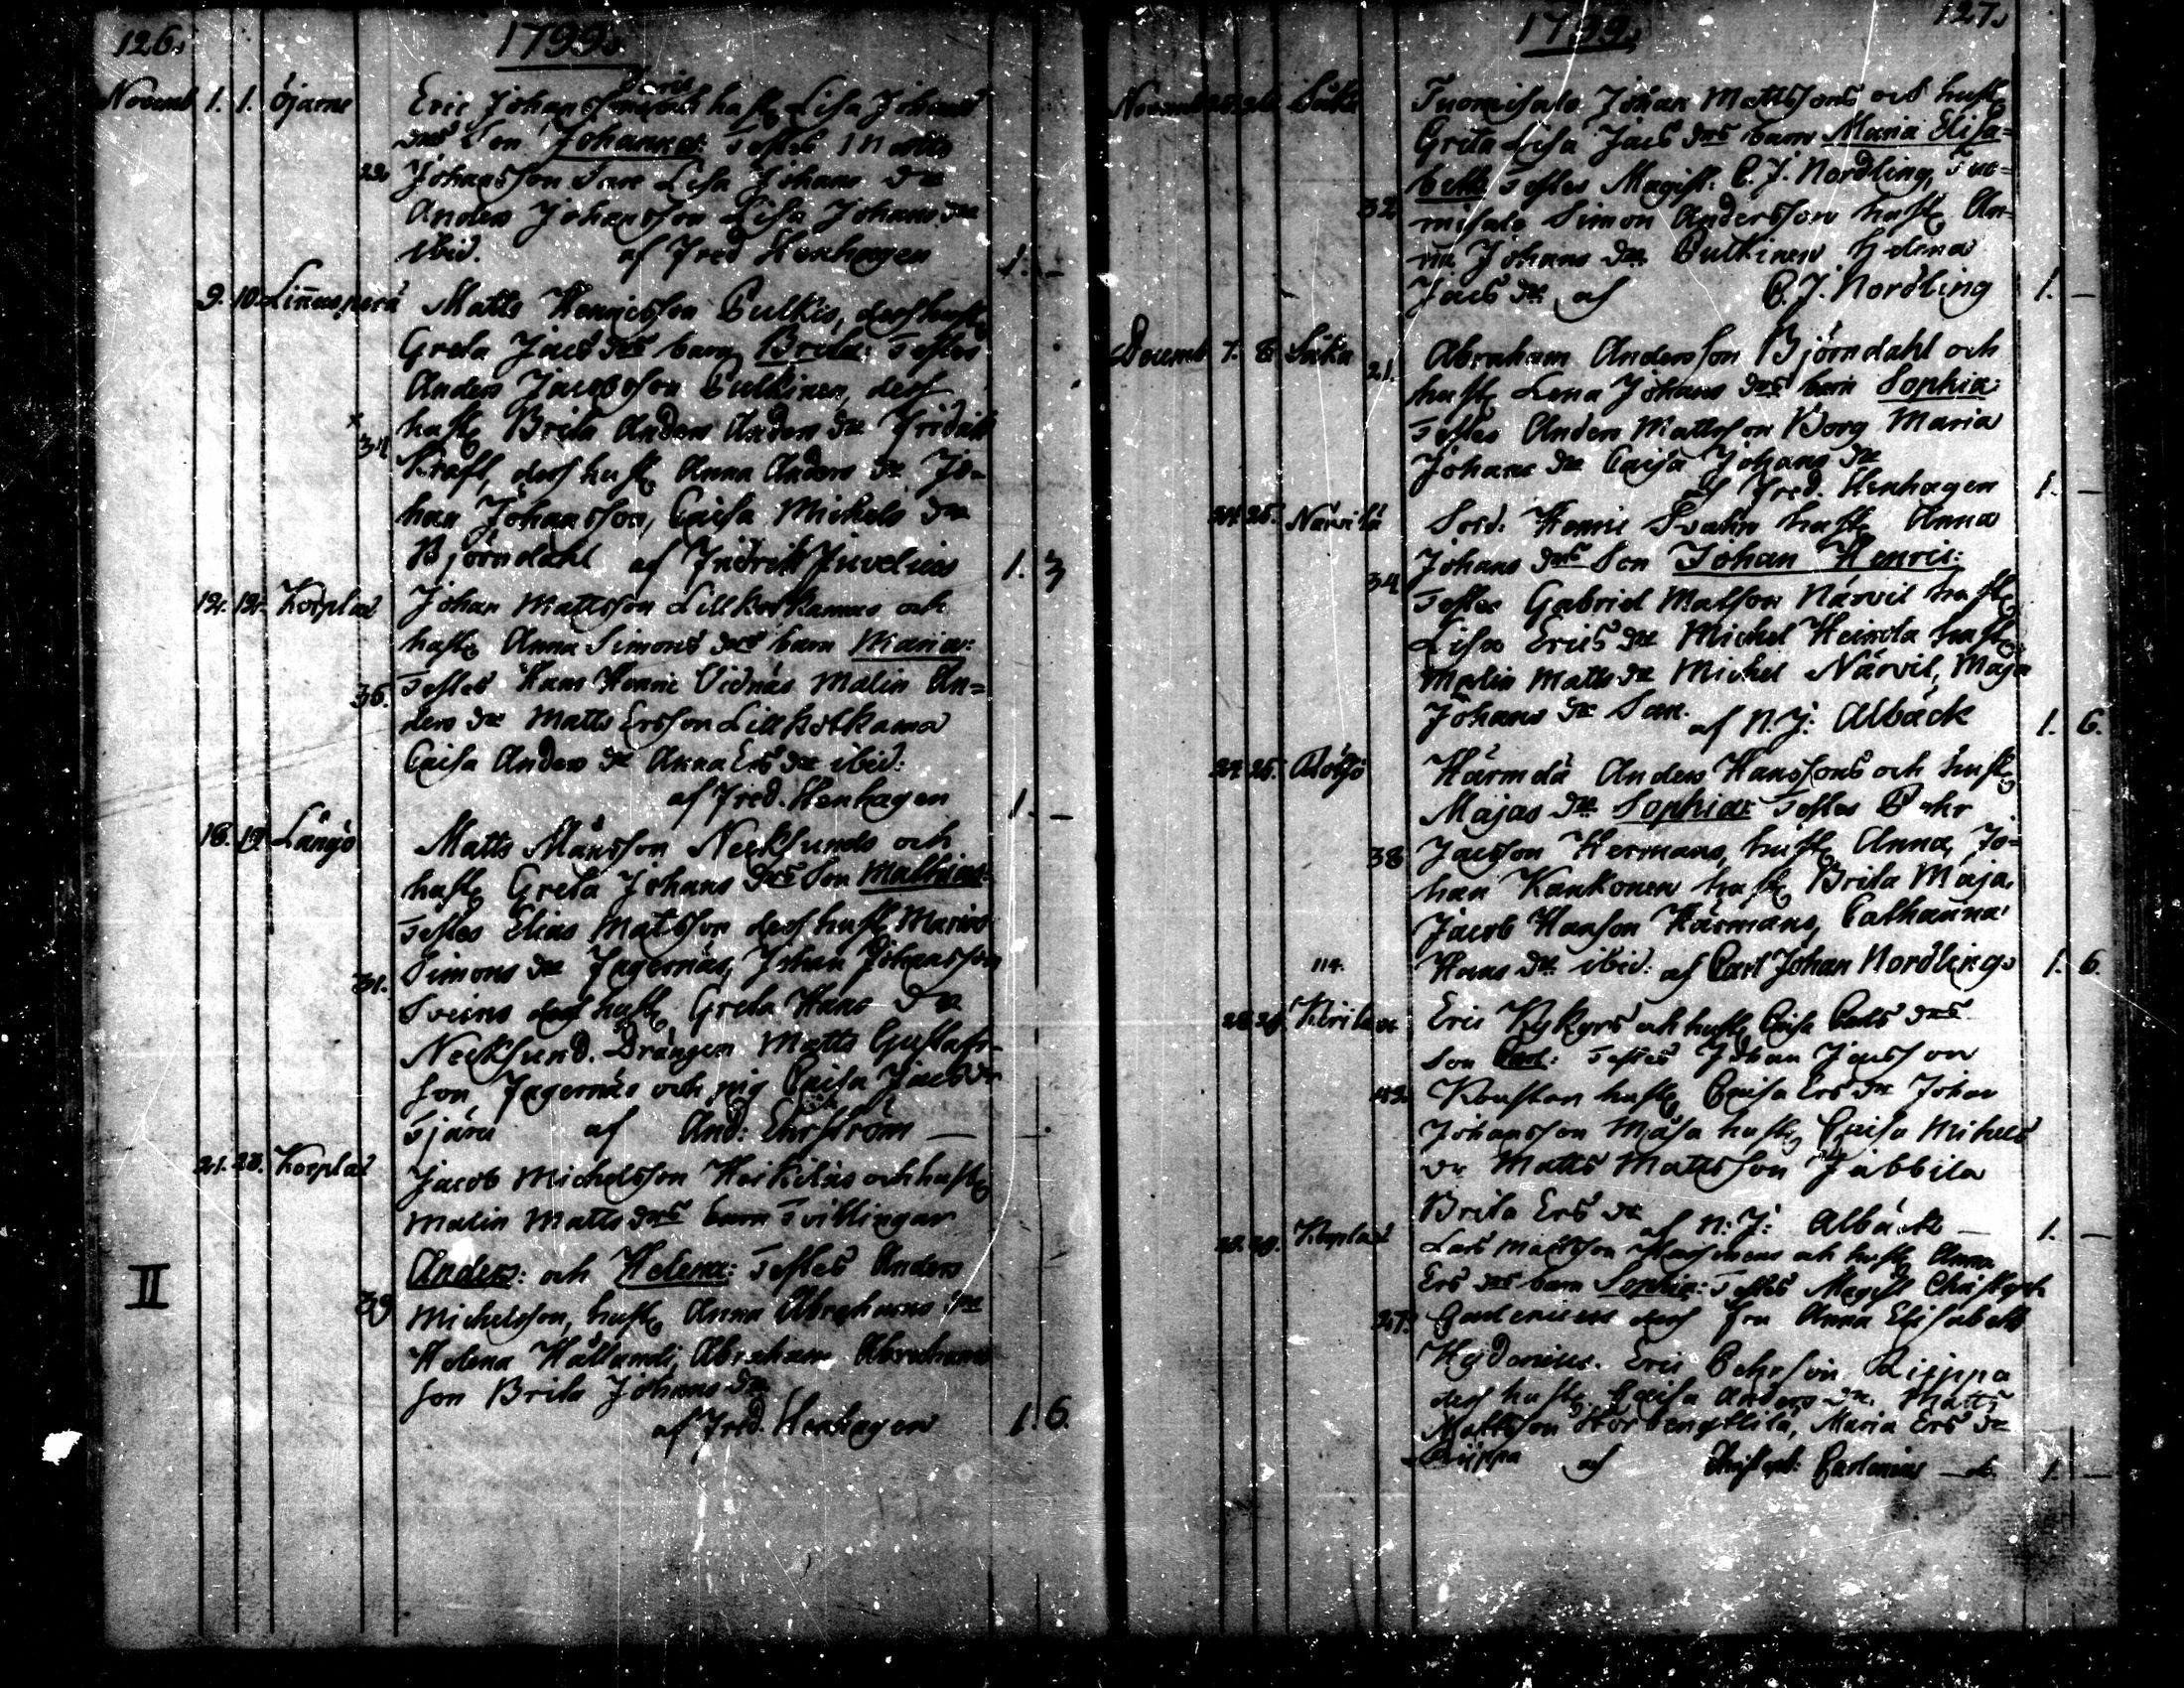 126.
1799.
Novemb 1. 1. öjarne Eric Johansson och hust. Lisa Johans
drs Son Johannes: Testes Matts
22. Johansson Lisa Johans dr
Anders Johansson Lisa Johans dr
ibid. af Fred Henhagen 1. —
9. 10. Linnusperä Matts Henricsson Pulkis, dess hust.
Greta Jacs drs barn Brita: Testes
Anders Jacobsson Pulkinen, dess
hust. Brita Anders Anders dr Fridric
34 Kraft, dess hust. Anna Anders dr Jo-
han Johansson, Caisa Michels dr
Björndahl af Fridrich Juvelius 1. 3
12. 12. Korplax Johan Mattsson Lillkolkamas och
hust. Anna Simons drs barn Maria:
36. Testes Hans Henric Vidnäs Malin An=
ders dr Matts Ersson Lillkolkama
Caisa Anders dr Anna Ers dr ibid:
af Fred. Henhagen 1. —
18. 19. Långö Matts Månsson Neeksunds och
hust. Greta Johans drs Son Matthias:
Testes Elias Matsson dess hust. Maria
31. Simons dr Jagernäs, Johan Johansson
Sveins dess hust. Greta Hans dr
Neeksund. Drängen Matts Gustafs-
son Jagernäs och pig Caisa Jacs dr
Tjäru af And: Ehrström —
21. 23. Korplax Jacob Michelsson Heikiläs och hust.
Malin Matts drs barn Tvillingar
II Anders: och Helena: Testes Anders
39 Michelsson, hust. Anna Abrahams dr
Helena Hällandi, Abraham Abrahams
son Brita Johans dr
af Fred. Henhagen 1. 6.
1799.
127.
Novemb Såka Tuomisalo Johan Mattssons och hust.
Greta Lisa Jacs drs barn Maria Elisa=
beth Testes Magist: C. J. Nordling, Tuo=
32 misalo Simon Andersson hust. An-
na Johans dr Pulkinen Helena
Jacs dr af C. J. Nordling 1. —
Decemb 7. 8 Såka 21. Abraham Andersson Björndahl och
hust. Lena Johans drs barn Sophia:
Testes Anders Mattsson Borg Maria
Johans dr Caisa Johans dr
af Fred. Henhagen 1. —
24. 25. Närvilä Sold: Henric Svahn hust. Anna
34 Johans drs Son Johan Henric:
Testes Gabriel Matson Närvil hust.
Lisa Erics dr Michel Heinola hust.
Malin Matts dr Michel Närvil, Maja
Johans dr af N. J: Albäck 1. 6.
24. 25. Härmälä Anders Hanssons och hust.
Majas dr Sophia: Testes Pehr
38 Jacsson Hermans, hust. Anna, Jo-
han Kankonen hust. Brita Maja,
Jacob Hanson Härmans, Catharina
114. Hans dr ibid: af Carl Johan Nordling. 1. 6.
28. 29. Eric Kykyrs och hust. Caisa Carls drs
Son Carl: Testes Johan Jacsson
Kaustar hust. Caisa Ers dr Johan
Johansson Måsa hust. Caisa Michels
dr Matts Mattsson Jäbbila
Brita Ers dr af N: J: Albäck — 1. —
29. Korplax Lars Mattsson och hust. Anna
Ers drs barn Sophia: Testes Magist Christoph
27. dess fru Anna Elisabeth
Hydenius. Eric Pehrsson Riippa
dess hust. Caisa Anders dr. Matts
Mattsson Storbengtlilä, Maria Ers dr
Riippa af 1. —